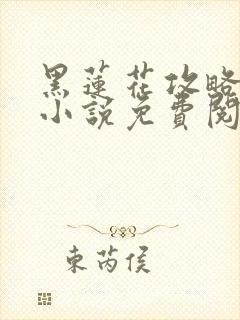 黑蓮花攻略
小說免費閱
東芮侯